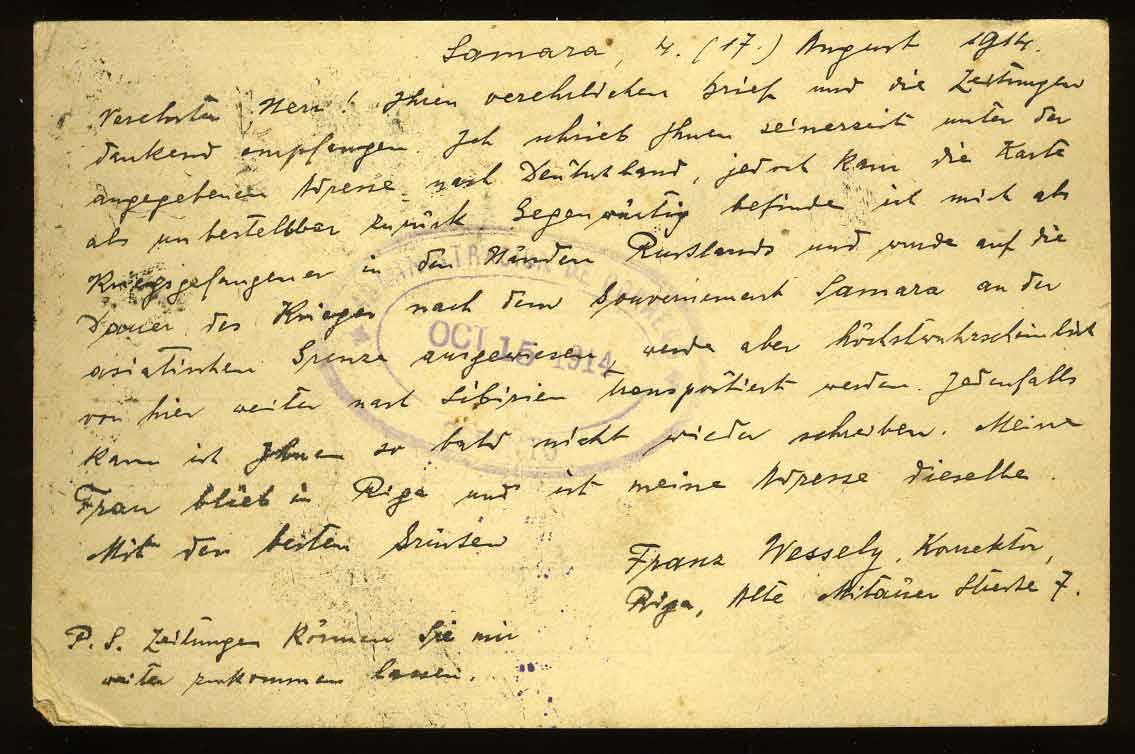 Samara, 4. (17.) August 1914.
Verehrter Herr! Ihren verehrlichen Brief und die Zeitungen
dankend empfangen. Ich schrieb Ihnen seinerzeit unter der
angegebenen Adresse nach Deutschland, jedoch kam die Karte
als unbestellbar zurück. Gegenwärtig befinde ich mich als
Kriegsgefangener in den Händen Russlands und wurde auf die
Dauer des Krieges nach dem Gouvernement Samara an der
asiatischen Grenze ausgewiesen, werde aber höchstwahrscheinlich
von hier weiter nach Sibirien transportiert werden. Jedenfalls
kann ich Ihnen so bald nicht wieder schreiben. Meine
Frau blieb in Riga und ist meine Adresse dieselbe.
Mit den besten Grüssen
Franz Wessely, Korrektor,
Riga, Alte Mitauer Strasse 7.
P.S. Zeitungen können Sie mir
weiter zukommen lassen.
OCT 15 1914